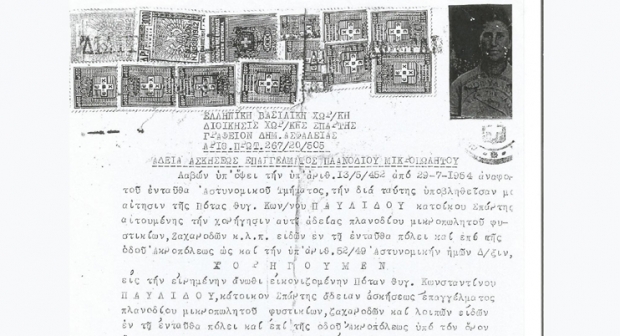 ΕΛΛΗΝΙΚΗ ΒΑΣΙΛΙΚΗ ΧΩΡ/ΚΗ
ΔΙΟΙΚΗΣΙΣ ΧΩΡ/ΚΗΣ ΣΠΑΡΤΗΣ
ΓΡΑΦΕΙΟΝ ΔΗΜ.ΑΣΦΑΛΕΙΑΣ
ΑΡΙΘ.ΠΡΩΤ.267/20/505
ΑΔΕΙΑ ΑΣΚΗΣΕΩΣ ΕΠΑΓΓΕΛΜΑΤΟΣ ΠΛΑΝΟΔΙΟΥ ΜΙΚΡΟΠΩΛΗΤΟΥ
Λαβών ὑπ'ὄψει τήν ὑπ'ἀριθ.13/5/452 ἀπό 29-7-1954 ἀναφορ
τοῦ ἐνταῦθα Ἀστυνομικοῦ Τμήματος,τήν διά ταύτης ὑποβληθεῖσαν μο
αἴτησιν τῆς Πότας θυγ. Κων/νου ΠΑΥΛΙΔΟΥ κατοίκου Σπάρτης
αἰτουμένης τήν χορήγησιν αὐτῇ ἀδείας πλανοδίου μικροπωλητοῦ φυ-
στικίων,Ζαχαρωδῶν κ.λ.π. εἰδῶν ἐν τῇ ἐνταῦθα πόλει καί ἐπί τῆς
ὁδοῦ Ἀκροπόλεως ὡς καί τήν ὑπ'ἀριθ.52/49 Ἀστυνομικήν ἡμῶν Δ/ξιν,
Χ Ο Ρ Η Γ Ο Υ Μ Ε Ν
εἰς τήν εἰρημένην ἄνωθι εἰκονιζομένην Πόταν θυγ. Κωνσταντίνου
ΠΑΥΛΙΔΟΥ,κάτοικον Σπάρτης ἄδειαν ἀσκήσεως ἐπαγγέλματος
πλανοδίου μικροπωλητοῦ φυστικίων,ζαχαρωδῶν καί λοιπῶν εἰδῶν
ἐν τῇ ἐνταῦθα πόλει καί ἐπί τῆς ὁδοῦ Ἀκροπόλεως ὑπό τόν ὅρον